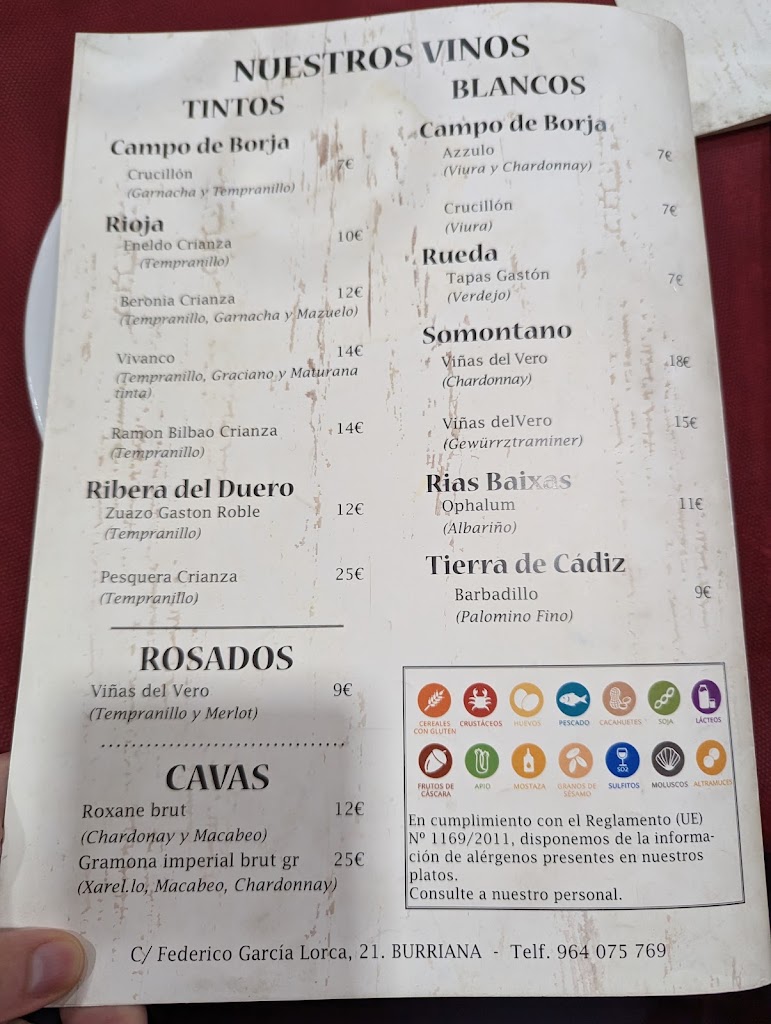 NUESTROS VINOS
TINTOS
Campo de Borja
Crucillón 7€
(Garnacha y Tempranillo)
Rioja
Eneldo Crianza 10€
(Tempranillo)
Beronia Crianza 12€
(Tempranillo, Garnacha y Mazuelo)
Vivanco 14€
(Tempranillo, Graciano y Maturana
tinta)
Ramon Bilbao Crianza 14€
(Tempranillo)
Ribera del Duero
Zuazo Gaston Roble 12€
(Tempranillo)
Pesquera Crianza 25€
(Tempranillo)
ROSADOS
Viñas del Vero 9€
(Tempranillo y Merlot)
CAVAS
Roxane brut 12€
(Chardonay y Macabeo)
Gramona imperial brut gr 25€
(Xarel.lo, Macabeo, Chardonnay)
BLANCOS
Campo de Borja
Azzulo 7€
(Viura y Chardonnay)
Crucillón 7€
(Viura)
Rueda
Tapas Gastón 7€
(Verdejo)
Somontano
Viñas del Vero 18€
(Chardonnay)
Viñas delVero 15€
(Gewürrztraminer)
Rias Baixas
Ophalum 11€
(Albariño)
Tierra de Cádiz
Barbadillo 9€
(Palomino Fino)
CEREALES CRUSTÁCEOS HUEVOS PESCADO CACAHUETES SOJA LÁCTEOS
CON GLUTEN
SO2
FRUTOS DE APIO MOSTAZA GRANOS DE SULFITOS MOLUSCOS ALTRAMUCES
CÁSCARA SÉSAMO
En cumplimiento con el Reglamento (UE)
Nº 1169/2011, disponemos de la informa-
ción de alérgenos presentes en nuestros
platos.
Consulte a nuestro personal.
C/ Federico García Lorca, 21. BURRIANA - Telf. 964 075 769